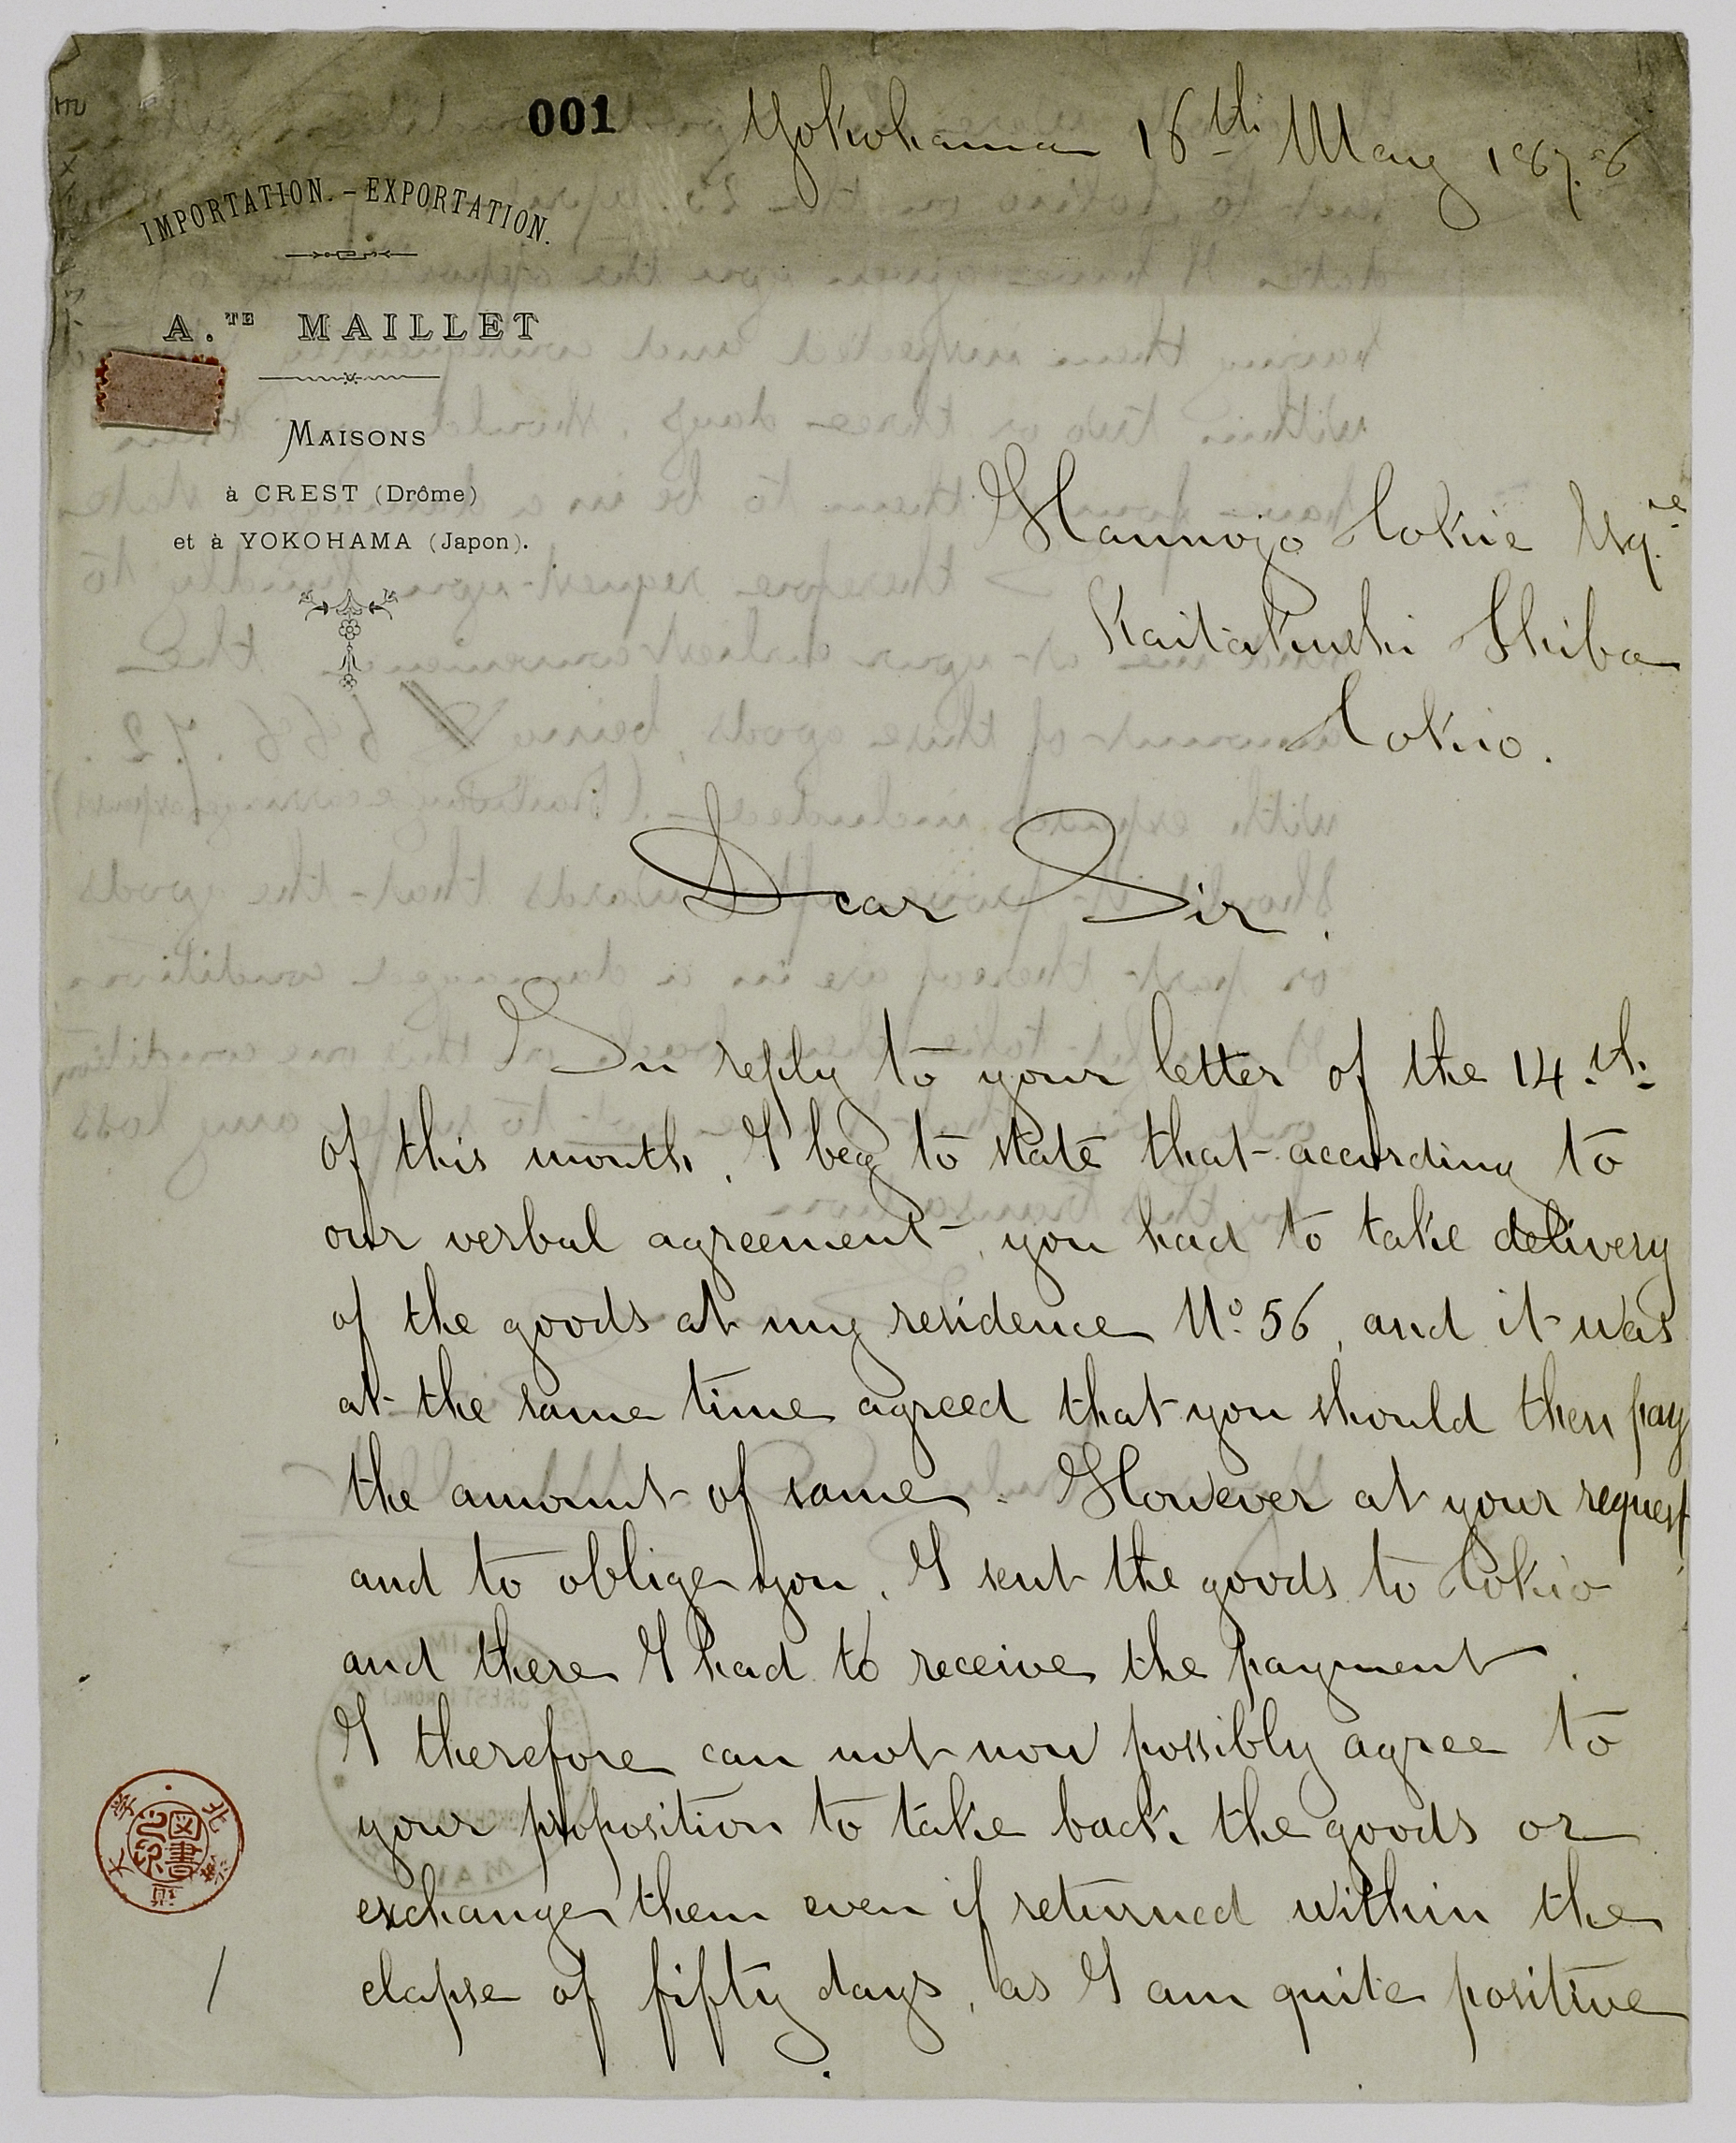 001
Yokohama 16th May 1878
IMPORTATION. - EXPORTATION.
A.TE MAILLET
MAISONS
à CREST (Drôme)
et à YOKOHAMA (Japon).
Hannojo Tokie Esqre
Kaitakushi Shiba
Tokio.
Dear Sir,
In reply to your letter of the 14.th
of this month, I beg to state that according to
our verbal agreement, you had to take delivery
of the goods at my residence No 56, and it was
at the same time agreed that you should then pay
the amount of same. However at your request
and to oblige you, I sent the goods to Tokio
and there I had to receive the payment.
I therefore can not now possibly agree to
your proposition to take back the goods or
exchange them even if returned within the
elapse of fifty days, as I am quite positive
北大学
図書之印
/